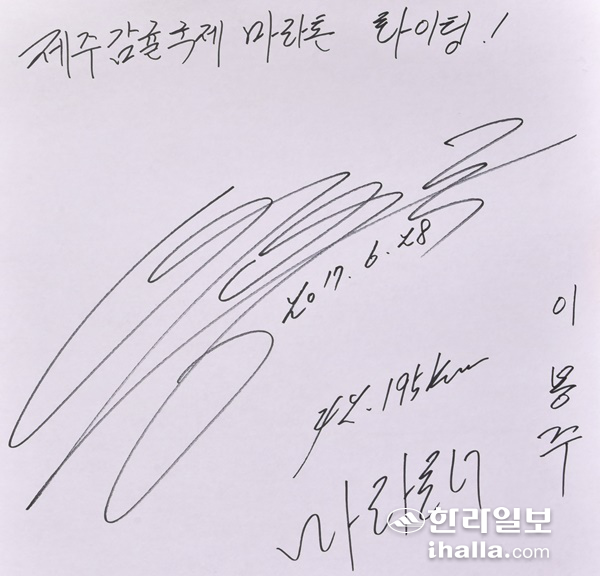 제주감귤국제 마라톤 화이팅!
2017. 6. 28
이봉주
42.195km
마라토너
한라일보
ihalla.com